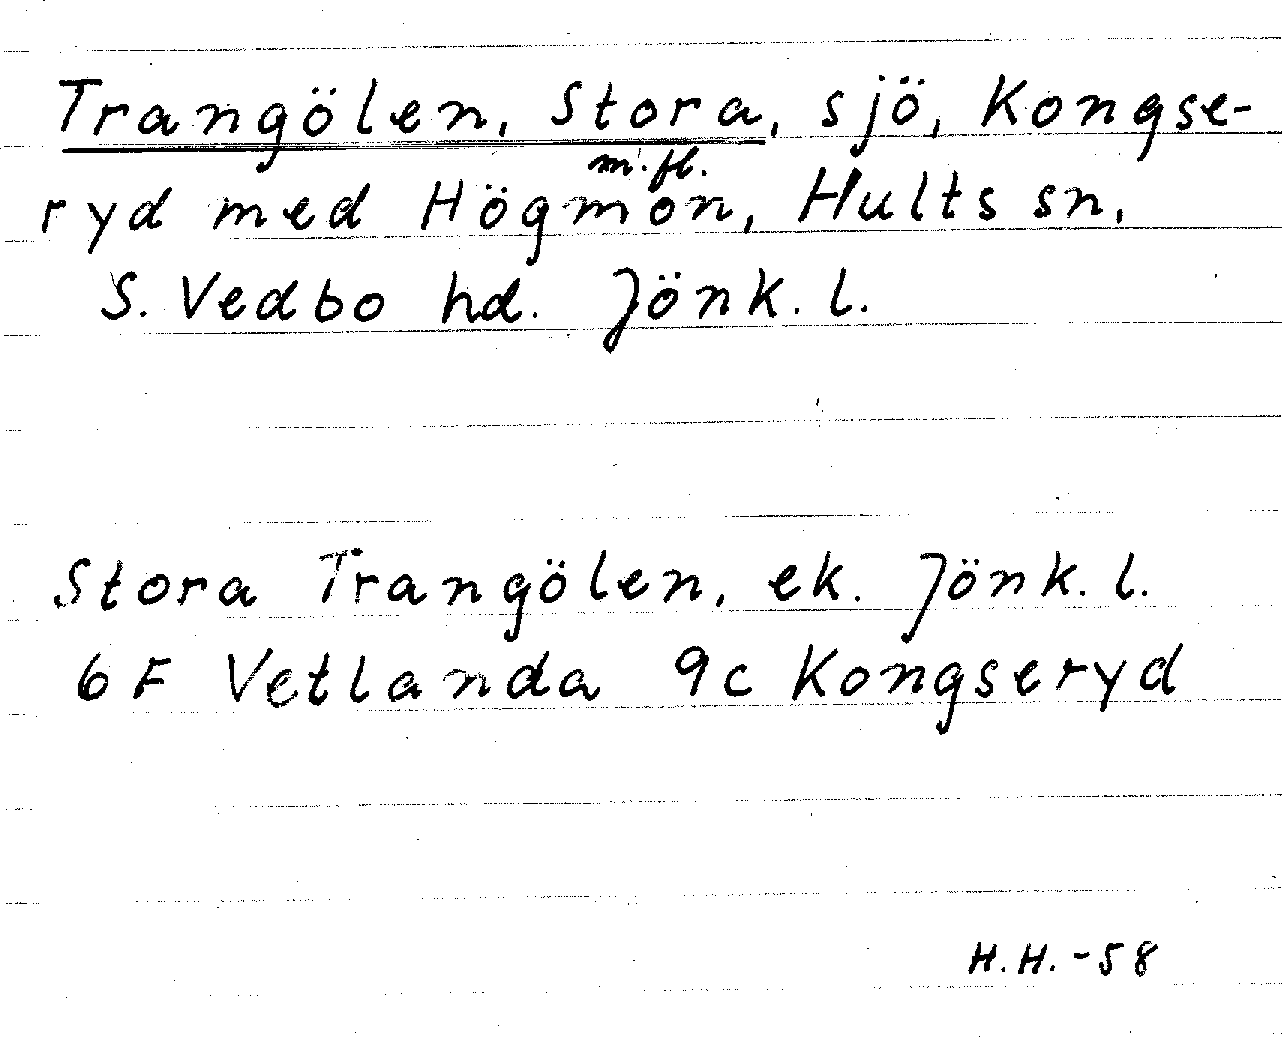 Trangölen, Stora, sjö, Kongse-
m.fl.
ryd med Högmon, Hults sn,
S. Vedbo hd. Jönk. l.
Stora Trangölen, ek. Jönk. l.
6 F Vetlanda 9c Kongseryd
H.H. -58